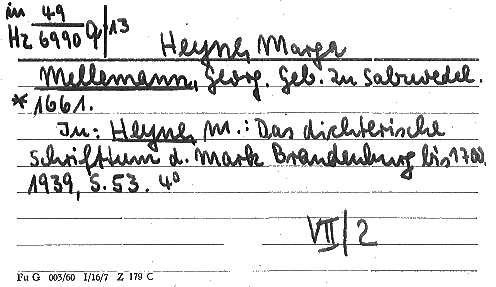 in 49
Hz 6990 q/13
Heyne, Marga
Mellemann, Georg. Geb. zu Salzwedel.
*1661.
In: Heyne, M.: Das dichterische
Schrifttum d. Mark Brandenburg bis 1700.
1939, S. 53. 4°
VII/2
Fu G 003/60 I/16/7 Z 179 C